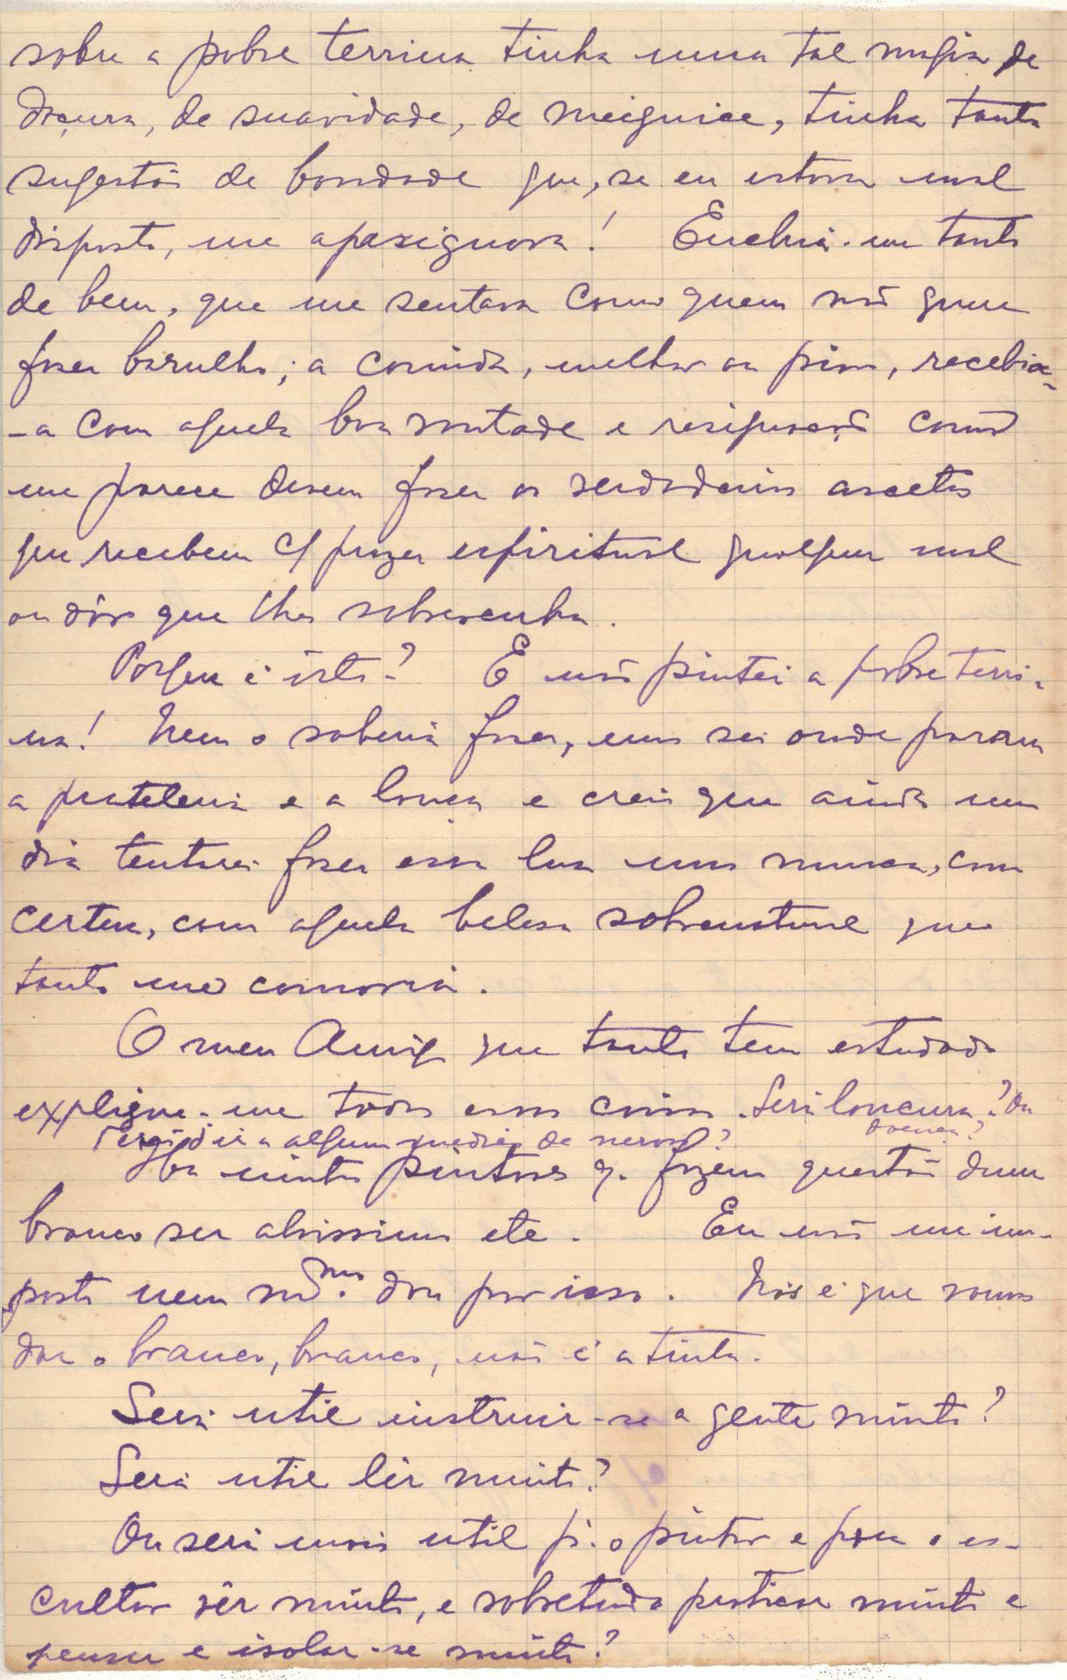 sobre a pobre terrina tinha uma tal magia de
doçura, de suavidade, de meiguice, tinha tanta
sugestão de bondade que, se eu estava mal
disposto, me apasiguava! Enchia-me tanto
de bem, que me sentava como quem não quer
fazer barulho; a comida, melhor ou pior, recebia-
-a com aquela boa vontade e resignação como
me parece devem fazer os verdadeiros ascetas
que recebem c/ prazer espiritual qualquer mal
ou dôr que lhes sobrevenha.
Porque é isto? E não pintei a pobre terri-
na! Nem o saberia fazer, nem sei onde param
a prateleira e a louça e creio que ainda um
dia tentarei fazer essa luz mas nunca, com
certeza, com aquela beleza sobrenatural que
tanto me comovia.
O meu Amigo que tanto tem estudado
explique-me todas essas coisas. Será loucura? Ou
doença?
a algum de nervos?
Ha muitos pintores q. fazem questão dum
branco ser alvissimo etc. Eu não me im-
porto nem m.mo dou por isso. Nós é que vamos
dar o branco, branco, não é a tinta.
Será util instruir-se a gente muito?
Será util lêr muito?
Ou será mais util p.ª o pintor e para o es-
cultor vêr muito, e sobretudo praticar muito e
pensar e isolar-se muito?